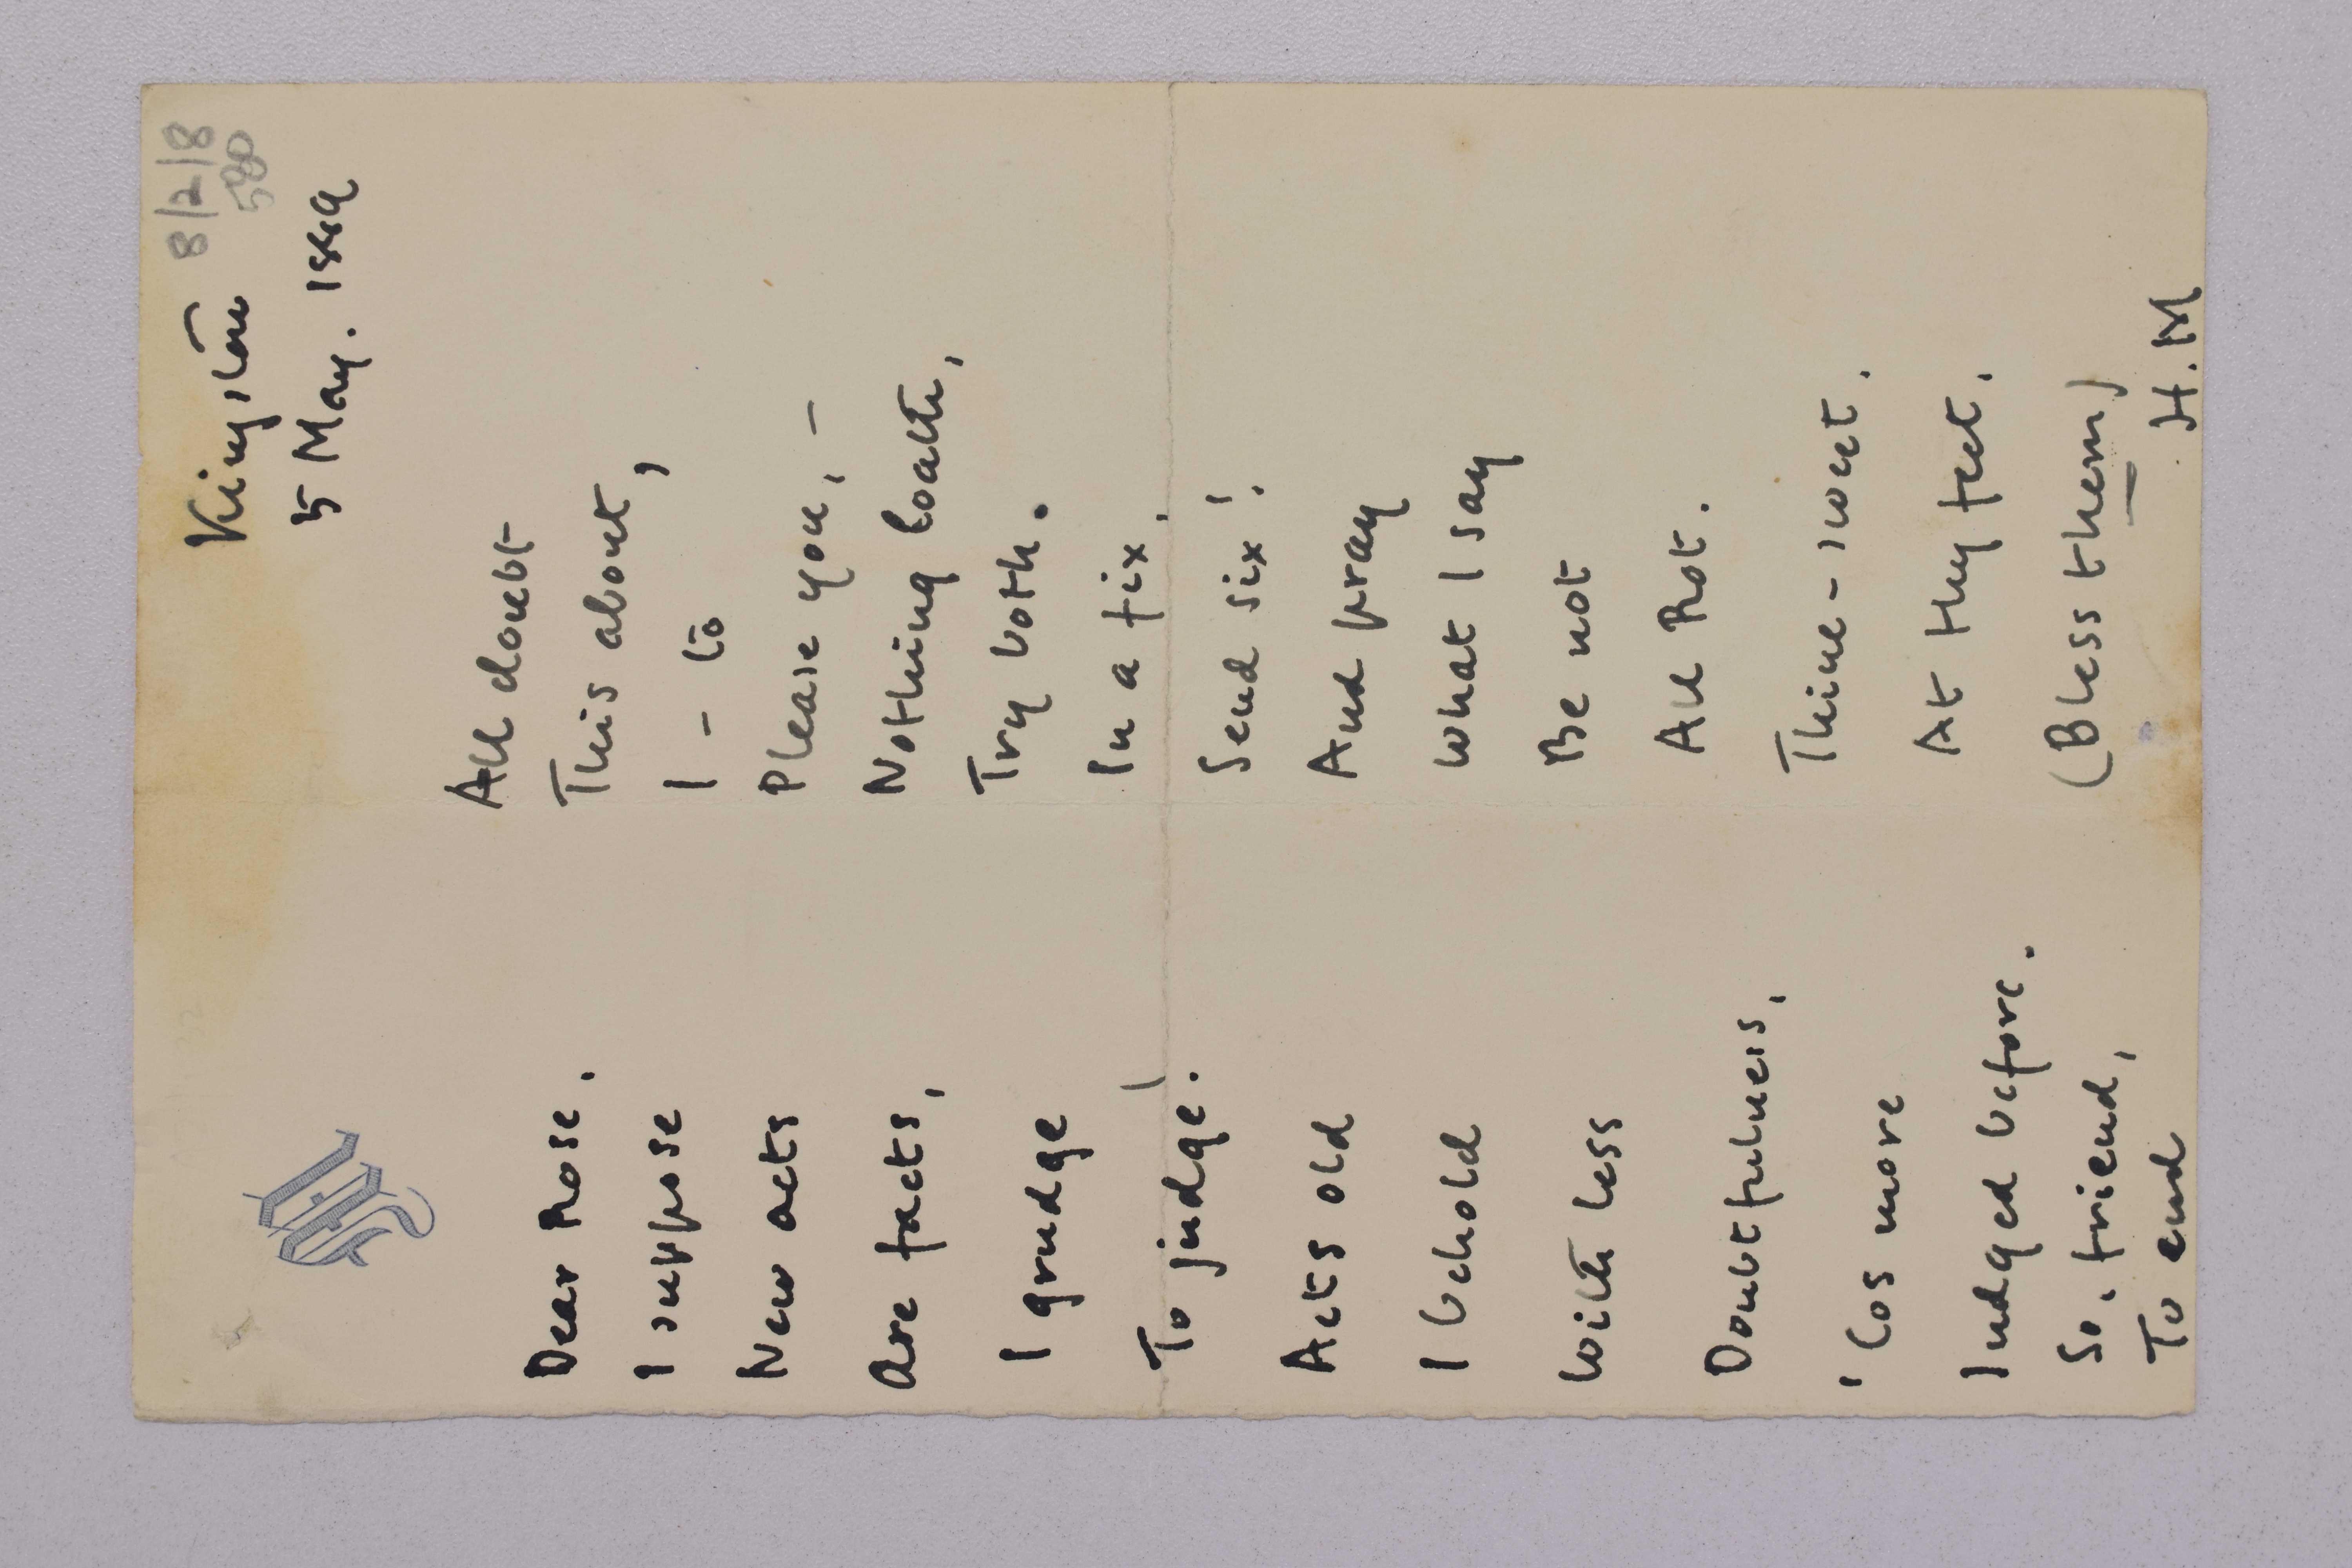 8/2/8
580
Kingston
5 May. 1889
Dear Rose.
I suppose
New acts
Are facts,
I grudge
To judge.
Acts old
I behold
With less
Doubtfulness,
'Cos more
Judged before.
So, friend,
To end
All doubt
This about,
I - to
Please you, -
Nothing loath,
Try both.
In a fix,
Send six!
And pray
What I say
Be not
All Rot.
Thine - sweet.
At thy feet.
(Bless them)
H.M